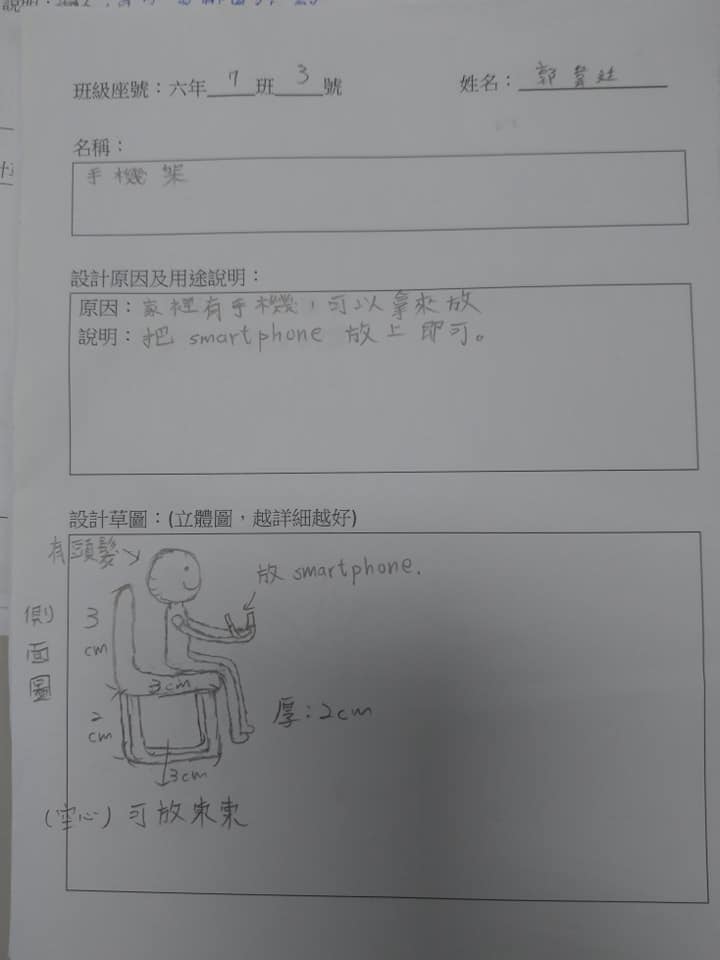 班級座號：六年 7 班 3 號 姓名：郭
名稱：
手機架
設計原因及用途說明：
原因：家裡有手機，可以拿來放
說明：把 smartphone 放上即可。
設計草圖：(立體圖，越詳細越好)
有頭髮
放 smartphone.
側面圖
3 cm
3cm
2 cm
厚：2cm
3cm
(空心) 可放東東